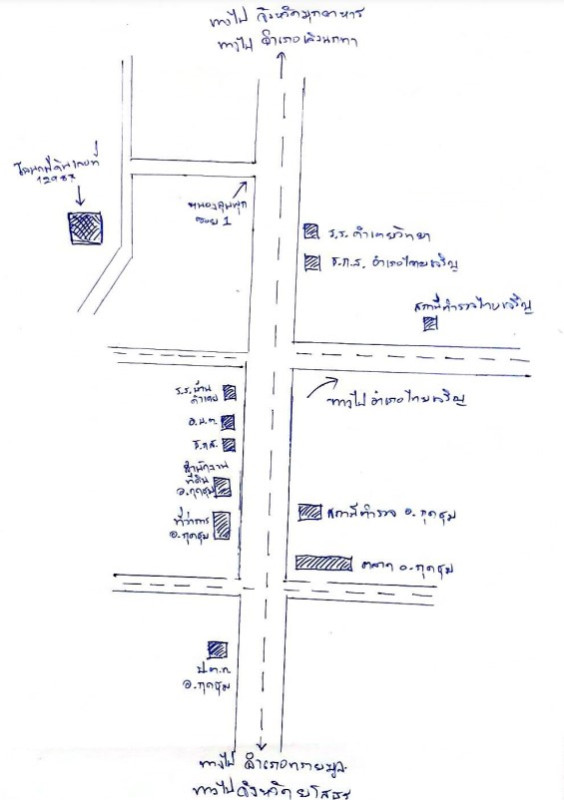 ทางไป จังหวัดมุกดาหาร
ทางไป อำเภอเลิงนกทา
โฉนดที่ดินเลขที่
12987
ซอย 1
ร.ร. คำเตยวิทยา
ธ.ก.ส. อำเภอไทยเจริญ
สถานีตำรวจไทยเจริญ
ทางไป อำเภอไทยเจริญ
ร.ร. บ้าน
คำเตย
อ.บ.ต.
ธ.ก.ส.
สำนักงาน
ที่ดิน
อ.กุดชุม
ที่ว่าการ
อ.กุดชุม
สถานีตำรวจ อ.กุดชุม
ตลาด อ.กุดชุม
ป.ต.ท.
อ.กุดชุม
ทางไป อำเภอทรายมูล
ทางไปจังหวัดยโสธร